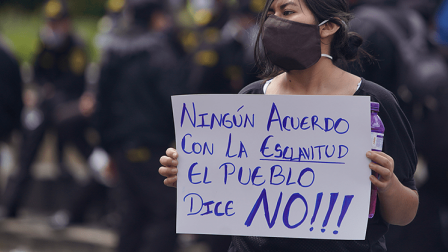 NINGÚN ACUERDO
CON LA ESCLAVITUD
EL PUEBLO
DICE NO!!!